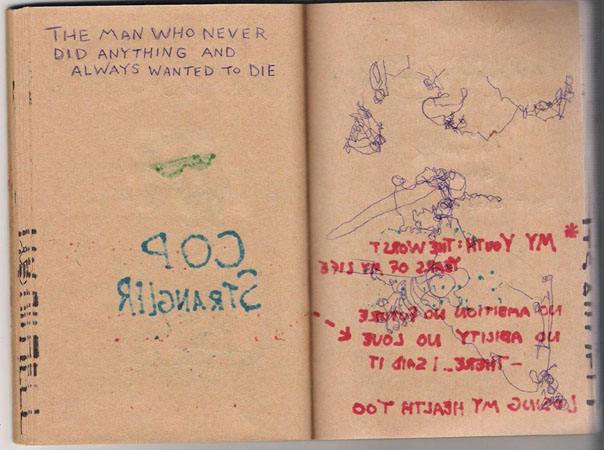 THE MAN WHO NEVER
DID ANYTHING AND
ALWAYS WANTED TO DIE
COP
STRANGLER
* MY YOUTH: THE WORST
YEARS OF MY LIFE
NO AMBITION NO FUTURE
NO ABILITY NO LOVE
- THERE_ I SAID IT
LOSING MY HEALTH TOO